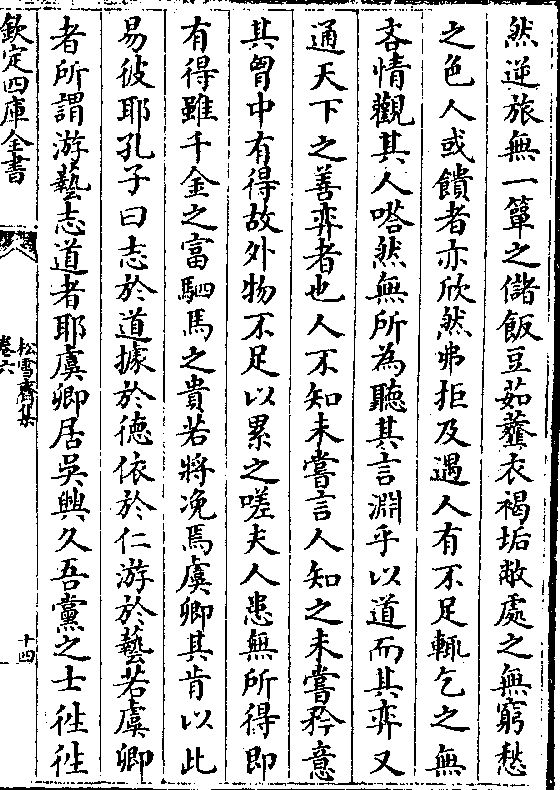 然逆旅無一簞之儲飯豆茹虀衣褐垢敝處之無窮愁
之色人或饋者亦欣然弗拒及遇人有不足輒乞之無
吝情觀其人嗒然無所為聽其言淵乎以道而其弈又
通天下之善弈者也人不知未嘗言人知之未嘗矜意
其胷中有得故外物不足以累之嗟夫人患無所得即
有得雖千金之富駟馬之貴若將浼焉虞卿其肯以此
易彼耶孔子曰志於道據於德依於仁游於藝若虞卿
者所謂游藝志道者耶虞卿居吳興久吾黨之士徃徃
欽定四庫全書
松雪齋集
卷六
十四